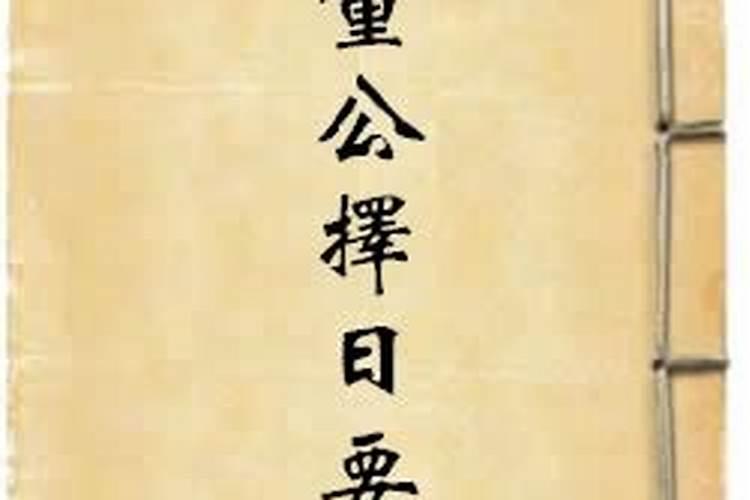 董公擇日要